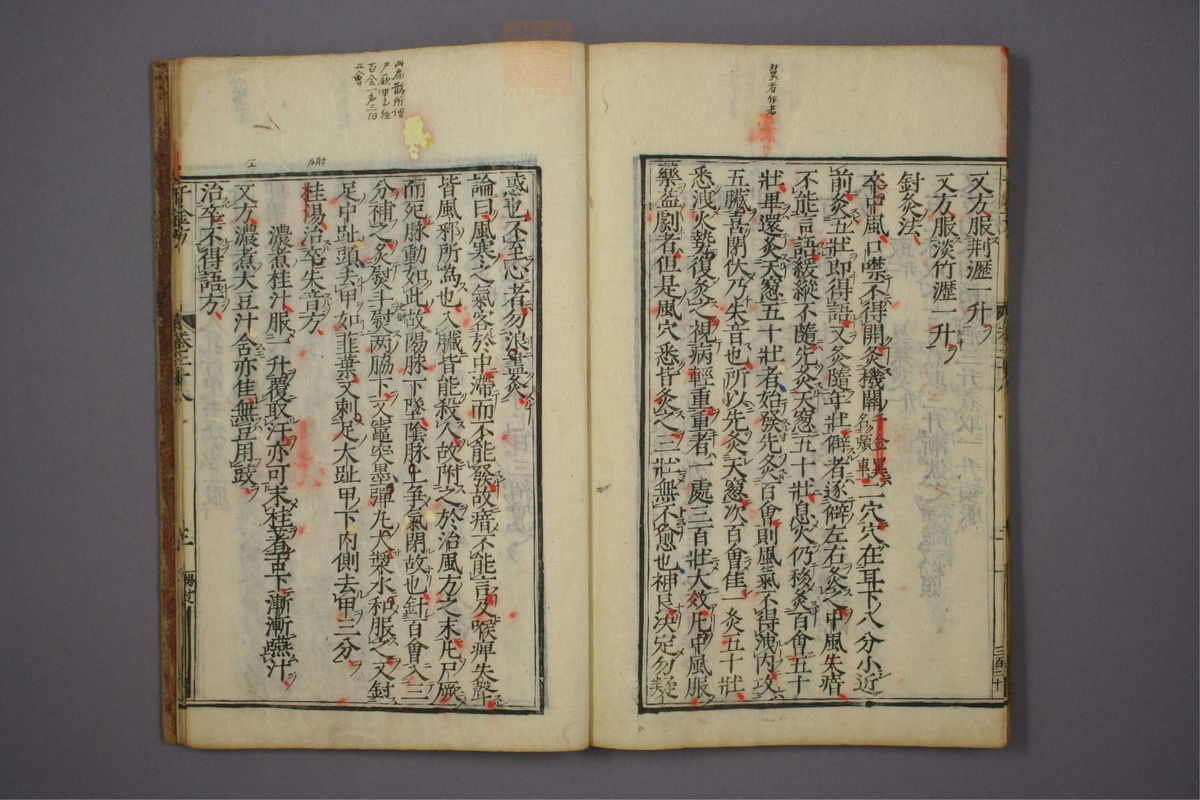 又方服荆瀝一升
又方服淡竹瀝一升
針灸法
卒中風口噤不得開灸機關千金翼名頰車二穴穴在耳下八分小近
前灸五壯即得語又灸隨年壯僻者逐僻左右灸之中風失瘖
不能言語緩縱不隨先灸天窻五十壯息火仍移灸百會五十
壯畢還灸天窻五十壯者始發先灸百會則風氣不得洩内攻
五臟喜閉伏乃失音也所以先灸天窻次百會佳一灸五十壯
悉洩火勢復灸之視病輕重重者一處三百壯大效凡中風服
藥益劇者但是風穴悉皆灸之三壯無不愈也神良決定勿疑
惑也不至心者勿浪盡灸
論曰風寒之氣客於中滯而不能發故瘖不能言及喉痺失聲
皆風邪所為也入臟皆能殺人故附之於治風方之末凡尸厥
而死脉動如此故陽脉下墜陰脉上爭氣閉故也針百會入三
分補之灸熨斗熨兩脇下又竈突墨彈丸大漿水和服之又針
足中趾頭去甲如韮葉又刺足大趾甲下内側去甲三分
桂湯治卒失音方
濃煮桂汁服一升覆取汗亦可末桂著舌下漸漸嚥汁
又方濃煮大豆汁含亦佳無豆用豉
治卒不得語方
千金方
卷二十八